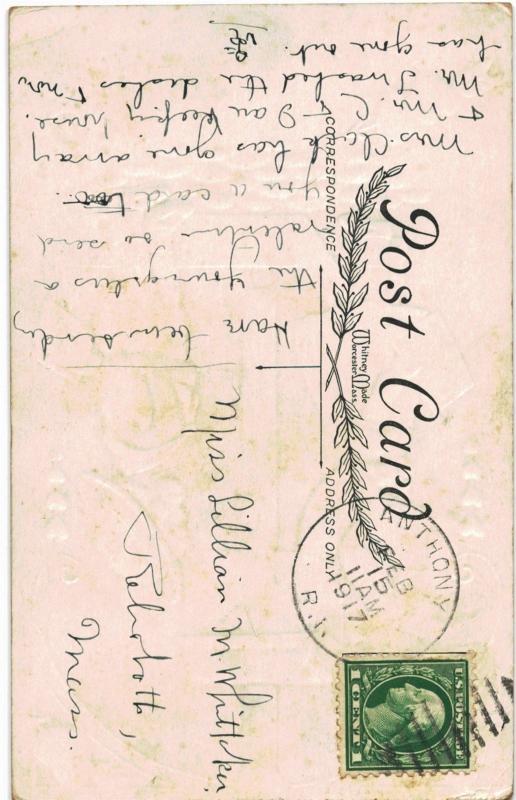 Post Card
Whitney Made
Worcester Mass.
CORRESPONDENCE
ADDRESS ONLY
ANTHONY
FEB
15
11 AM
1917
R.I.
U.S. POSTAGE
1 CENT 1
Have been sending
the youngsters a
valentine so send
you a card too.
Mrs. Clark has gone away
& Mr. C & I am keeping house.
Mr. I washed the dishes & now
has gone out.
Miss Lillian M Whittaker,
Rehoboth,
Mass.